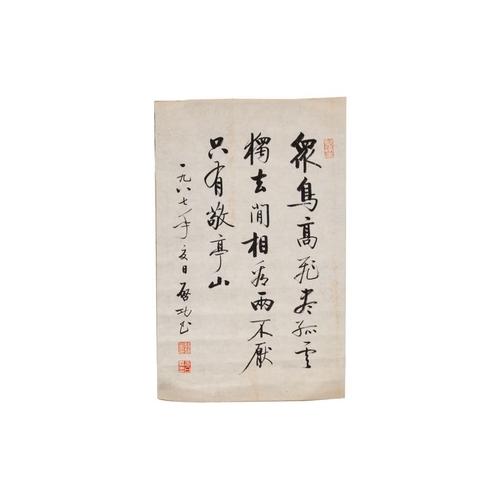 眾鳥高飛盡孤雲
獨去閒相看兩不厭
只有敬亭山
一九八七年夏日啟功書